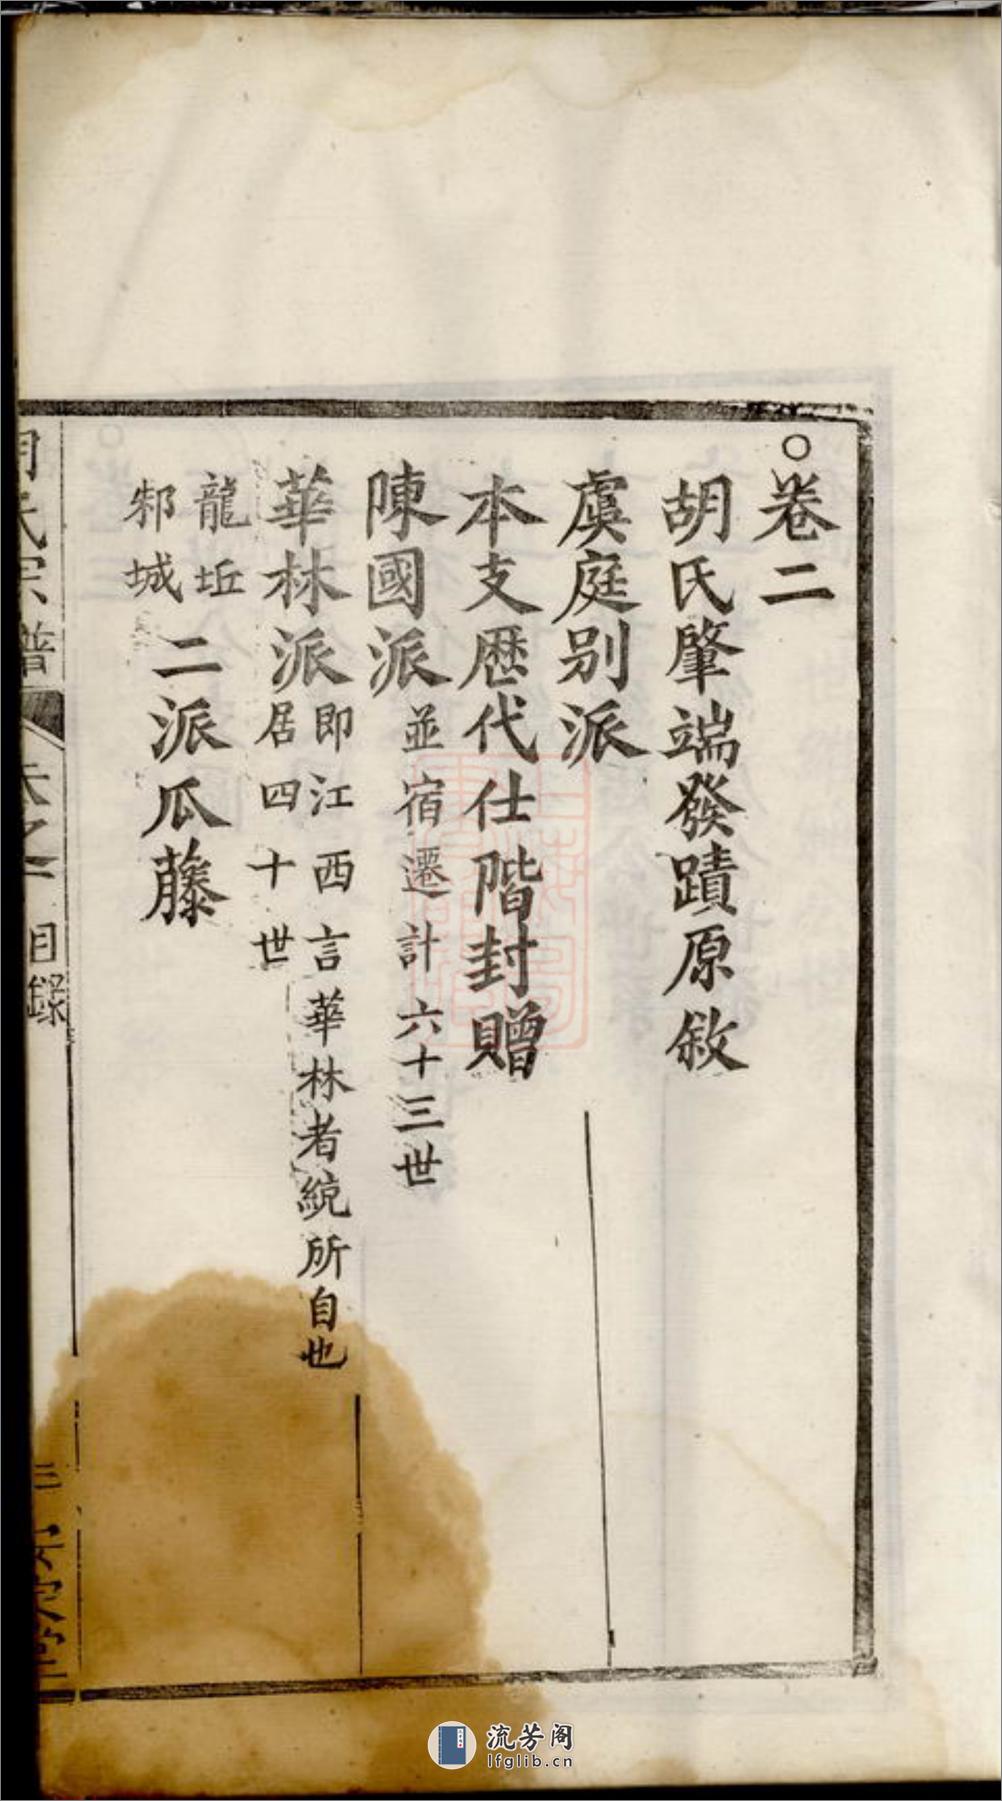 ○卷二
胡氏肇端發蹟原敘
虞庭別派
本支歷代仕階封贈
陳國派並宿遷計六十三世
華林派即江西言華林者統所自也
居四十世
龍坵
邾城
二派瓜藤
氏宗譜 卷之一 目錄 三
流芳阁
lfglib.cn